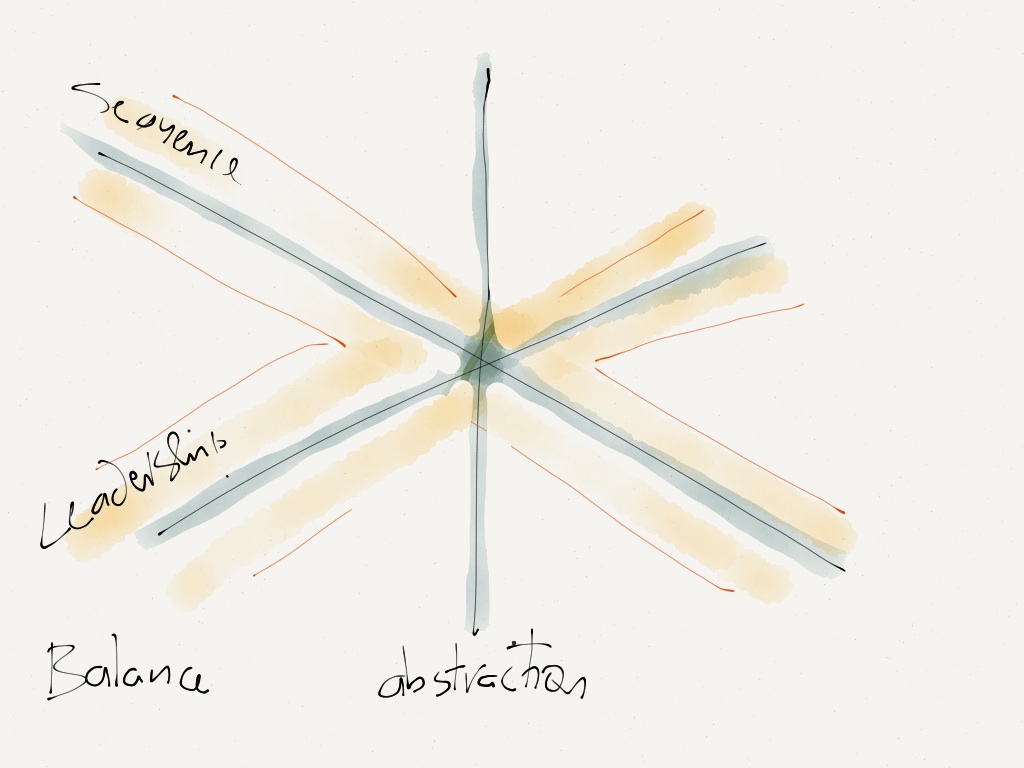 Sequence
Leadership
Balance
abstraction